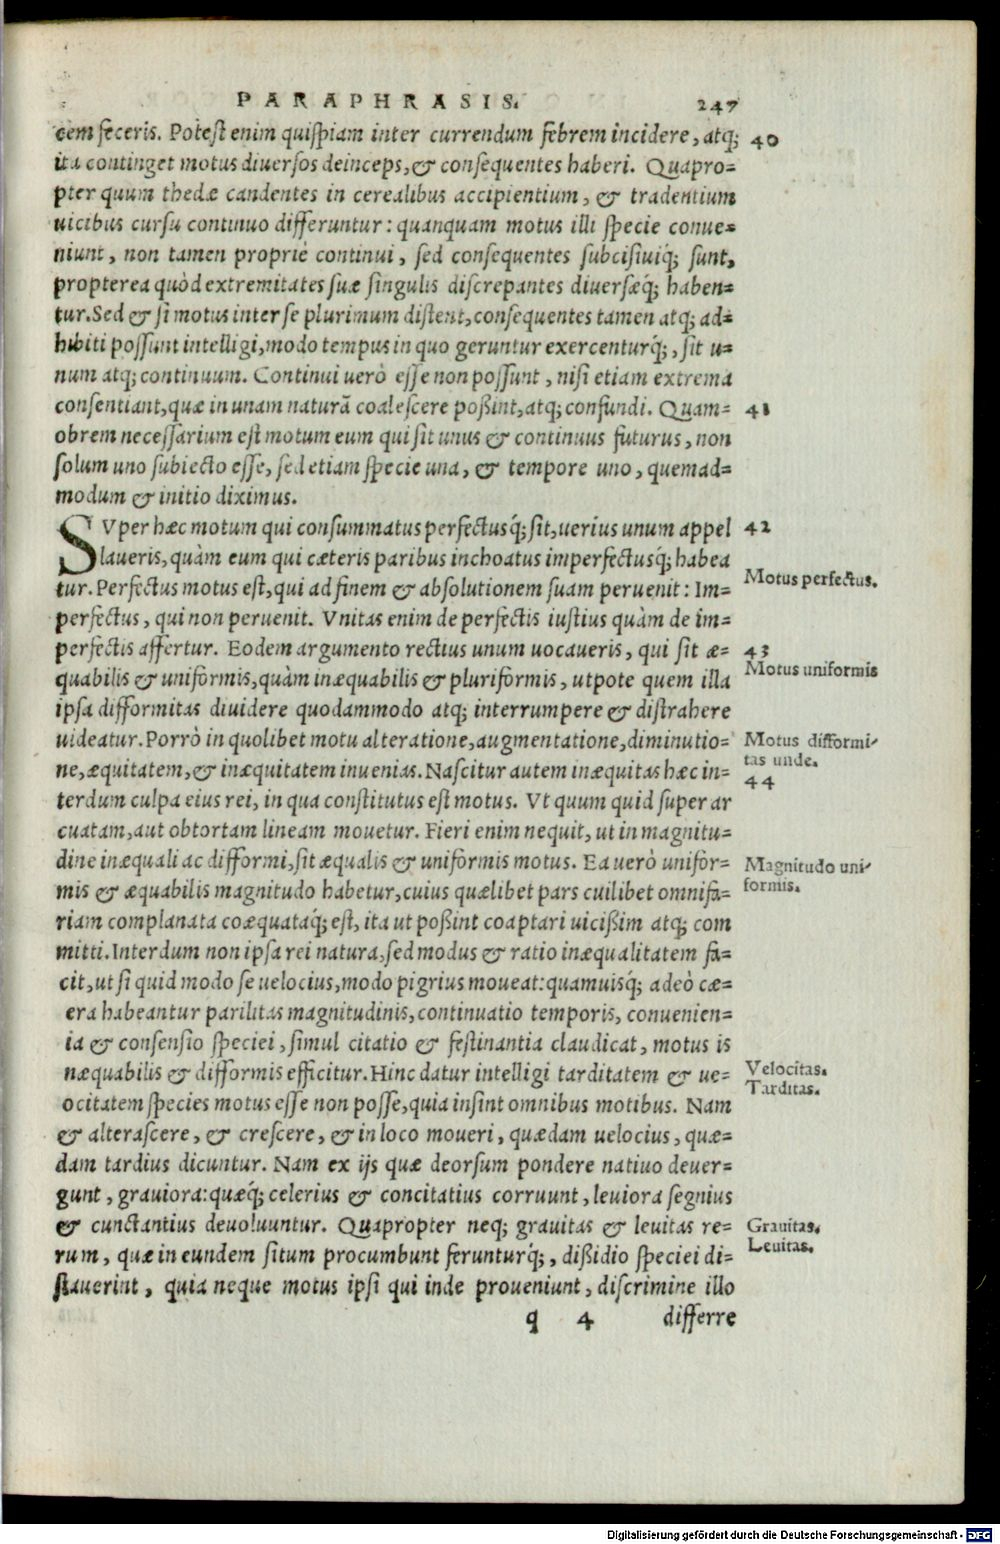 PARAPHRASIS. 247
cem feceris. Potest enim quispiam inter currendum febrem incidere, atq; 40
ita continget motus diuersos deinceps, & consequentes haberi. Quapro=
pter quum thedæ candentes in cerealibus accipientium, & tradentium
uicibus cursu continuo differuntur: quanquam motus illi specie conue=
niunt, non tamen propriè continui, sed consequentes subcisiuiq́; sunt,
propterea quòd extremitates suæ singulis discrepantes diuersæq́; haben=
tur. Sed & si motus inter se plurimum distent, consequentes tamen atq; ad=
hibiti possunt intelligi, modo tempus in quo geruntur exercenturq́;, sit u=
num atq; continuum. Continui uerò esse non possunt, nisi etiam extrema
consentiant, quæ in unam naturā coalescere poßint, atq; confundi. Quam= 41
obrem necessarium est motum eum qui sit unus & continuus futurus, non
solum uno subiecto esse, sed etiam specie una, & tempore uno, quemad=
modum & initio diximus.
SVper hæc motum qui consummatus perfectusq́; sit, uerius unum appel 42
laueris, quàm eum qui cæteris paribus inchoatus imperfectusq́; habea
tur. Perfectus motus est, qui ad finem & absolutionem suam peruenit: Im= Motus perfectus.
perfectus, qui non peruenit. Vnitas enim de perfectis iustius quàm de im=
perfectis affertur. Eodem argumento rectius unum uocaueris, qui sit æ= 43
quabilis & uniformis, quàm inæquabilis & pluriformis, utpote quem illa Motus uniformis
ipsa difformitas diuidere quodammodo atq; interrumpere & distrahere
uideatur. Porrò in quolibet motu alteratione, augmentatione, diminutio= Motus difformi-
tas unde.
ne, æquitatem, & inæquitatem inuenias. Nascitur autem inæquitas hæc in= 44
terdum culpa eius rei, in qua constitutus est motus. Vt quum quid super ar
cuatam, aut obtortam lineam mouetur. Fieri enim nequit, ut in magnitu=
dine inæquali ac difformi, sit æqualis & uniformis motus. Ea uerò unifor= Magnitudo uni-
mis & æquabilis magnitudo habetur, cuius quælibet pars cuilibet omnifa= formis.
riam complanata coæquataq́; est, ita ut poßint coaptari uicißim atq; com
mitti. Interdum non ipsa rei natura, sed modus & ratio inæqualitatem fa=
cit, ut si quid modo se uelocius, modo pigrius moueat: quamuisq́; adeò cæ=
era habeantur parilitas magnitudinis, continuatio temporis, conuenien=
ia & consensio speciei, simul citatio & festinantia claudicat, motus is
næquabilis & difformis efficitur. Hinc datur intelligi tarditatem & ue= Velocitas.
Tarditas.
ocitatem species motus esse non posse, quia insint omnibus motibus. Nam
& alterascere, & crescere, & in loco moueri, quædam uelocius, quæ=
dam tardius dicuntur. Nam ex ijs quæ deorsum pondere natiuo deuer=
gunt, grauiora: quæq́; celerius & concitatius corruunt, leuiora segnius
& cunctantius deuoluuntur. Quapropter neq; grauitas & leuitas re= Grauitas.
rum, quæ in eundem situm procumbunt ferunturq́;, dißidio speciei di= Leuitas.
stauerint, quia neque motus ipsi qui inde proueniunt, discrimine illo
q 4 differre
Digitalisierung gefördert durch die Deutsche Forschungsgemeinschaft - DFG